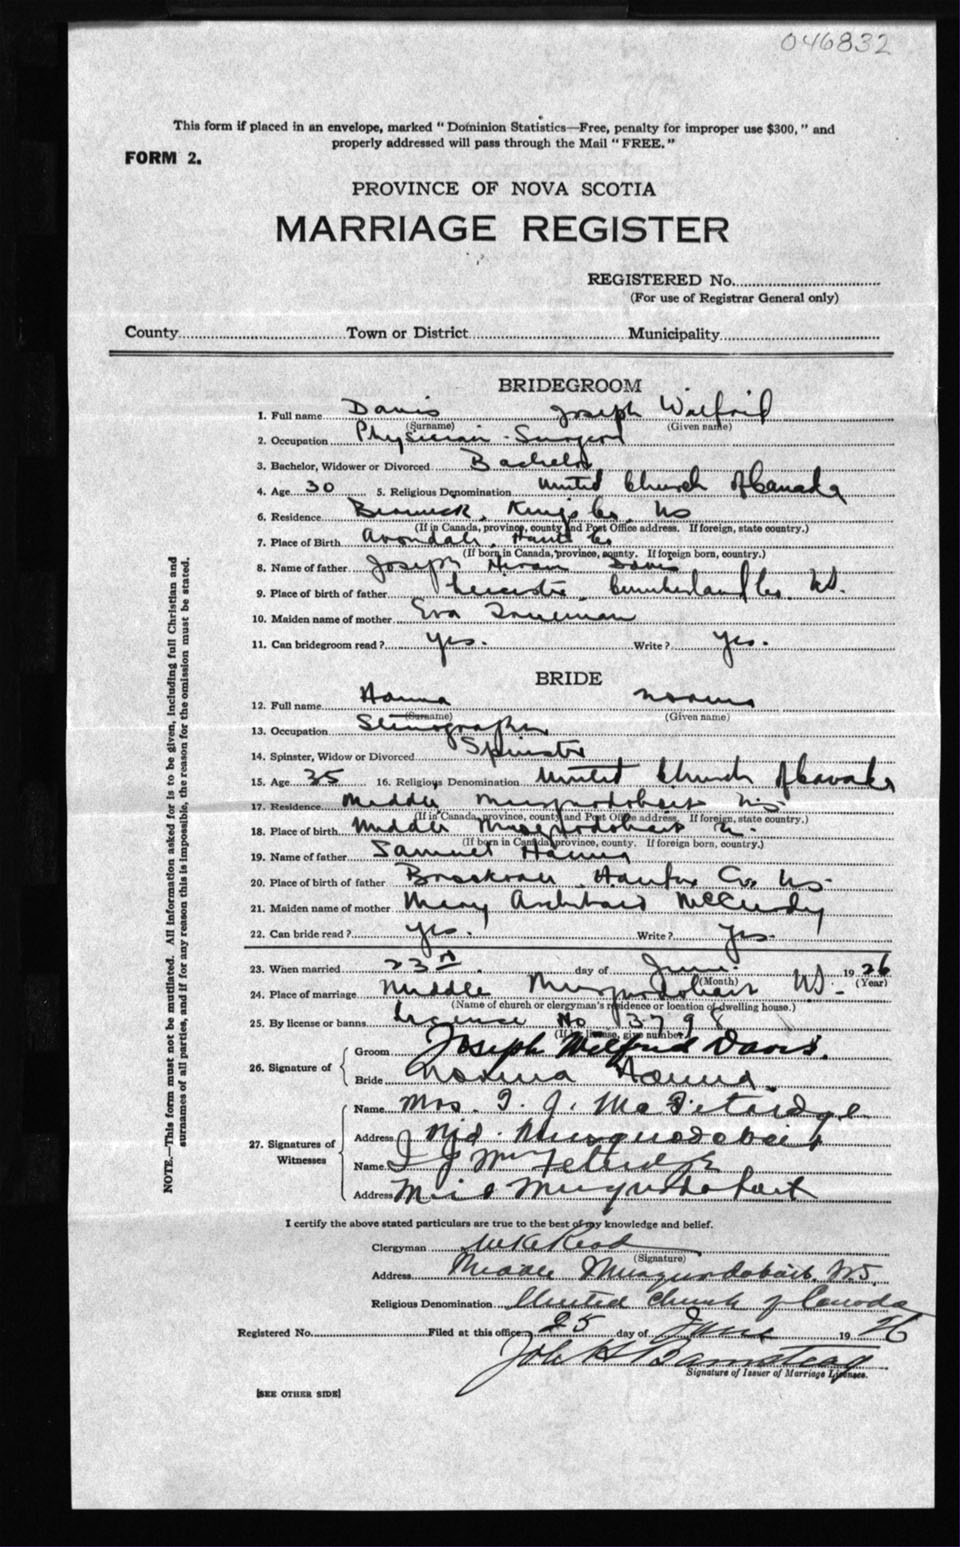 046832
This form if placed in an envelope, marked "Dominion Statistics—Free, penalty for improper use $300," and
properly addressed will pass through the Mail "FREE."
FORM 2.
PROVINCE OF NOVA SCOTIA
MARRIAGE REGISTER
REGISTERED No.
(For use of Registrar General only)
County Town or District Municipality
BRIDEGROOM
1. Full name Davis Joseph Wilfrid
(Surname) (Given name)
2. Occupation Physician - Surgeon
3. Bachelor, Widower or Divorced Bachelor
4. Age 30 5. Religious Denomination United Church of Canada
6. Residence Berwick, Kings Co. NS
(If in Canada, province, county and Post Office address. If foreign, state country.)
7. Place of Birth Avondale, Hants Co
(If born in Canada, province, county. If foreign born, country.)
8. Name of father Joseph Hiram Davis
9. Place of birth of father Leicester, Cumberland Co. NS.
10. Maiden name of mother Eva
11. Can bridegroom read? yes. Write? yes.
BRIDE
12. Full name Hanna Norma
(Surname) (Given name)
13. Occupation Stenographer
14. Spinster, Widow or Divorced Spinster
15. Age 35 16. Religious Denomination United Church of Canada
17. Residence Middle Musquodoboit NS.
(If in Canada, province, county and Post Office address. If foreign, state country.)
18. Place of birth Middle Musquodoboit
(If born in Canada, province, county. If foreign born, country.)
19. Name of father Samuel Hanna
20. Place of birth of father Brookvale, Halifax Co. NS.
21. Maiden name of mother Mary Archibald McCurdy
22. Can bride read? yes. Write? yes.
23. When married 23rd day of June 1926
(Month) (Year)
24. Place of marriage Middle Musquodoboit NS.
(Name of church or clergyman's residence or location of dwelling house.)
25. By license or banns License No 3798
(If by license, give number)
26. Signature of Groom Joseph Wilfrid Davis.
Bride Norma Hanna.
27. Signatures of Witnesses Name Mrs. I. J. McFetridge
Address Mid. Musquodoboit
Name I J McFetridge
Address Mid Musquodoboit
I certify the above stated particulars are true to the best of my knowledge and belief.
Clergyman Read
(Signature)
Address Middle Musquodoboit, N.S.
Religious Denomination United Church of Canada
Registered No. Filed at this office 25 day of June 1926
Signature of Issuer of Marriage Licenses.
[SEE OTHER SIDE]
NOTE.—This form must not be mutilated. All information asked for is to be given, including full Christian and
surnames of all parties, and if for any reason this is impossible, the reason for the omission must be stated.